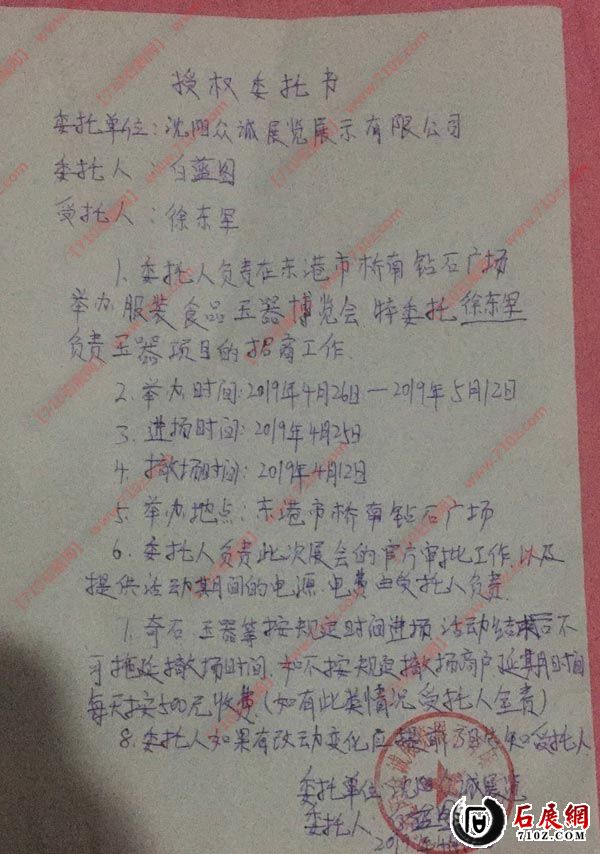 授权委托书
委托单位:沈阳众诚展览展示有限公司
委托人:白蓝图
受托人:徐东军
1.委托人负责在东港市桥南钻石广场
举办服装食品玉器博览会特委托徐东军
负责玉器项目的招商工作.
2.举办时间:2019年4月26日—2019年5月12日
3.进场时间:2019年4月25日
4.撤场时间:2019年4月12日
5.举办地点:东港市桥南钻石广场
6.委托人负责此次展会的官方审批工作.以及
提供活动期间的电源.电费由受托人负责.
7.奇石.玉器等按规定时间进场活动结束后不
可拖延撤场时间.如不按规定撤场商户延期时间
每天按500元收费(如有此类情况受托人全责)
8.委托人如果有改动变化应提前3日告知受托人
委托单位沈阳众诚展览
委托人 蓝图
2019年4月
石展網
710Z.COM